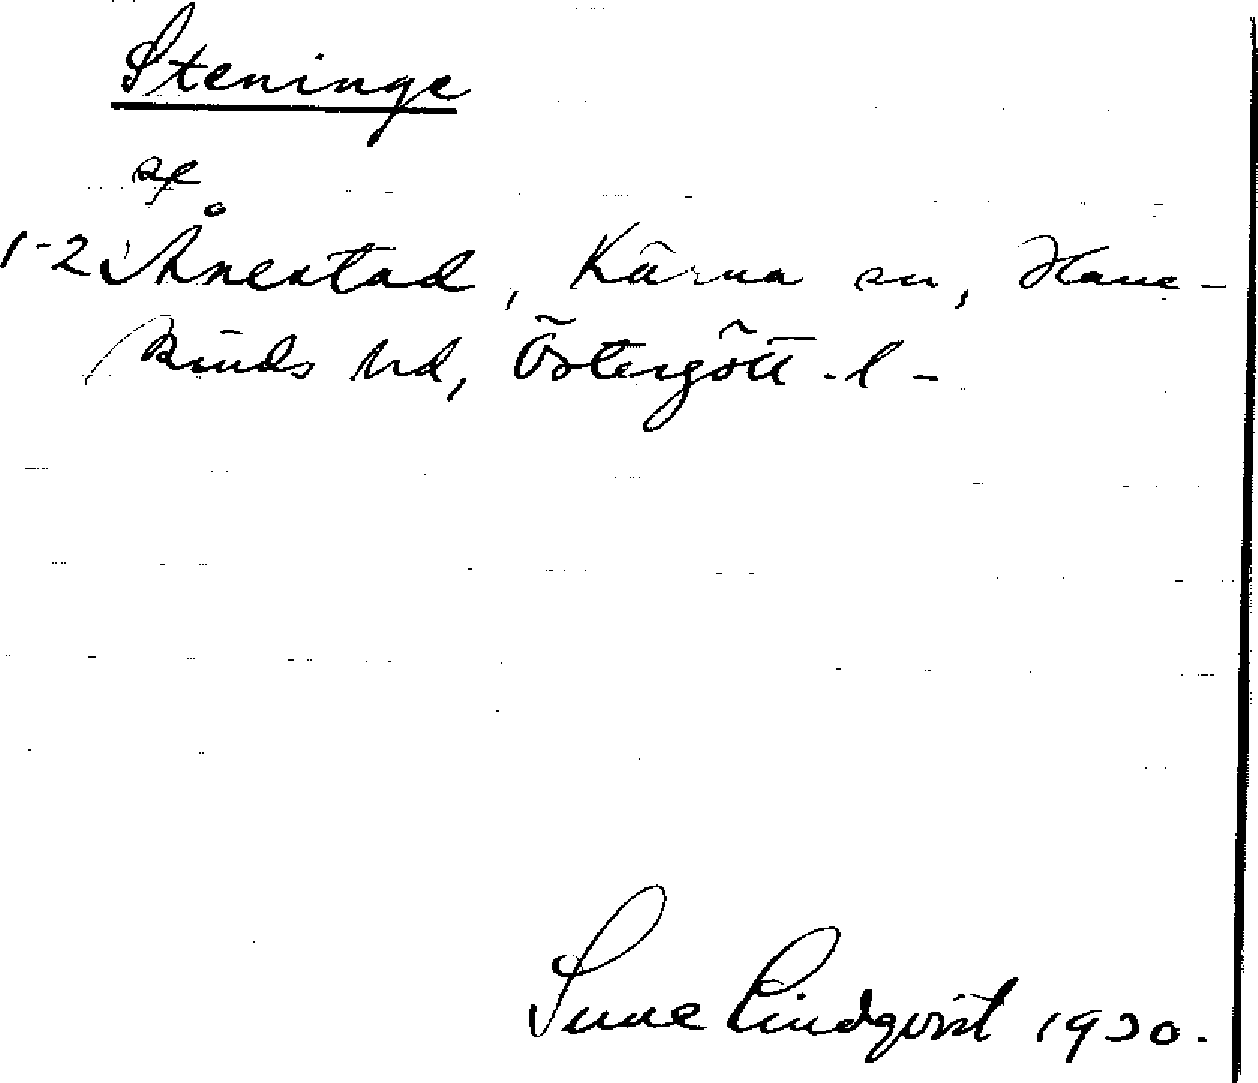 Steninge
af
1-2 Ånestad, Kärna sn, Hane-
kinds hd, Östergötl.l-
Sune Lindqvist 1920.